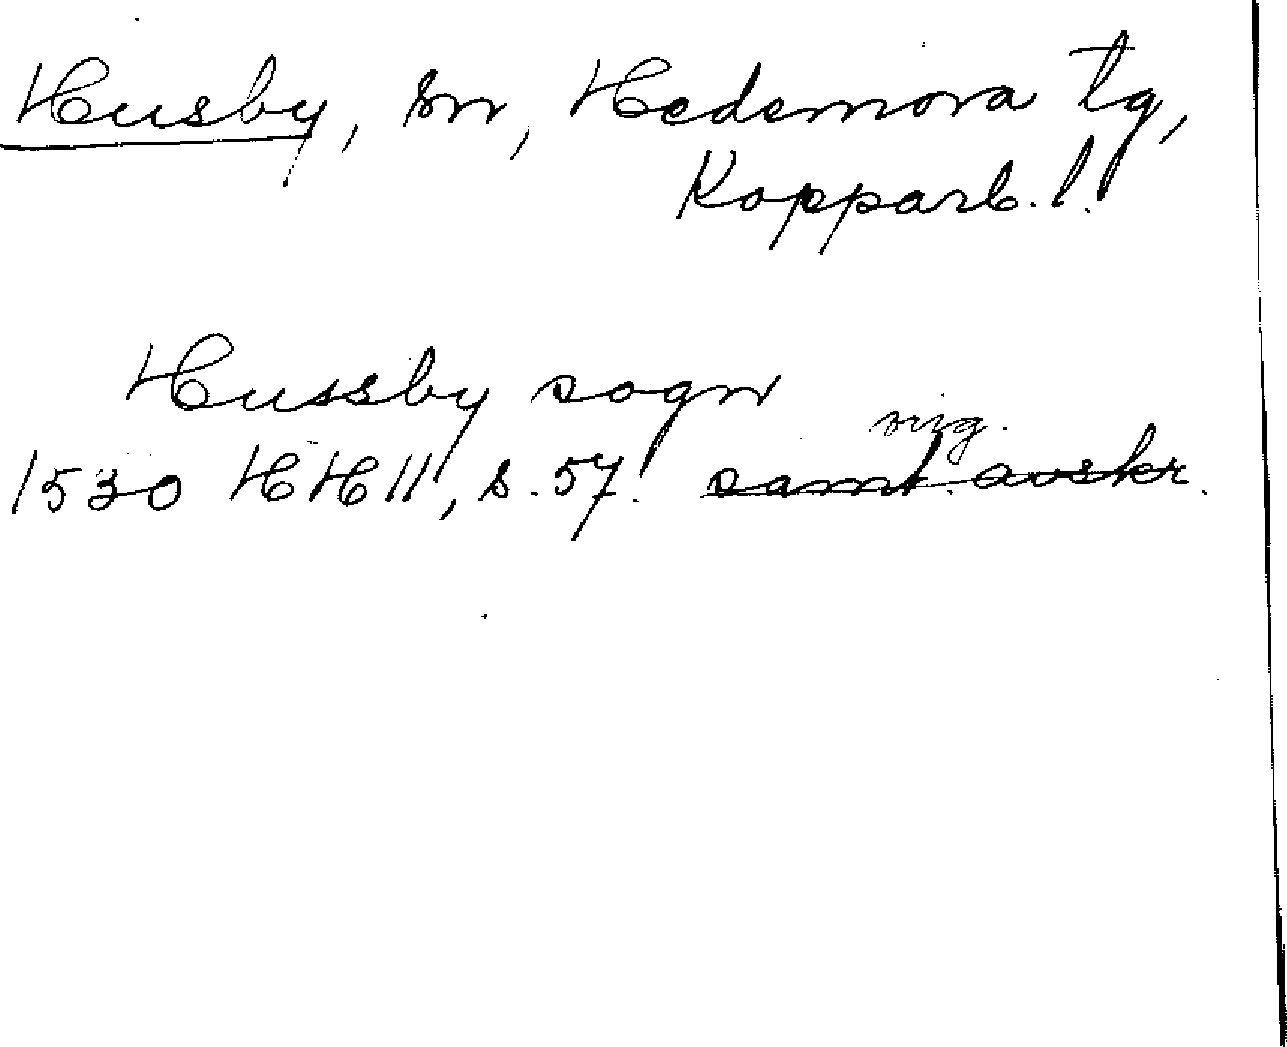 Husby, sn, Hedemora tg,
Kopparb. l.
Hussby sogn
orig.
1530 HH II, s. 57. samt. avskr.